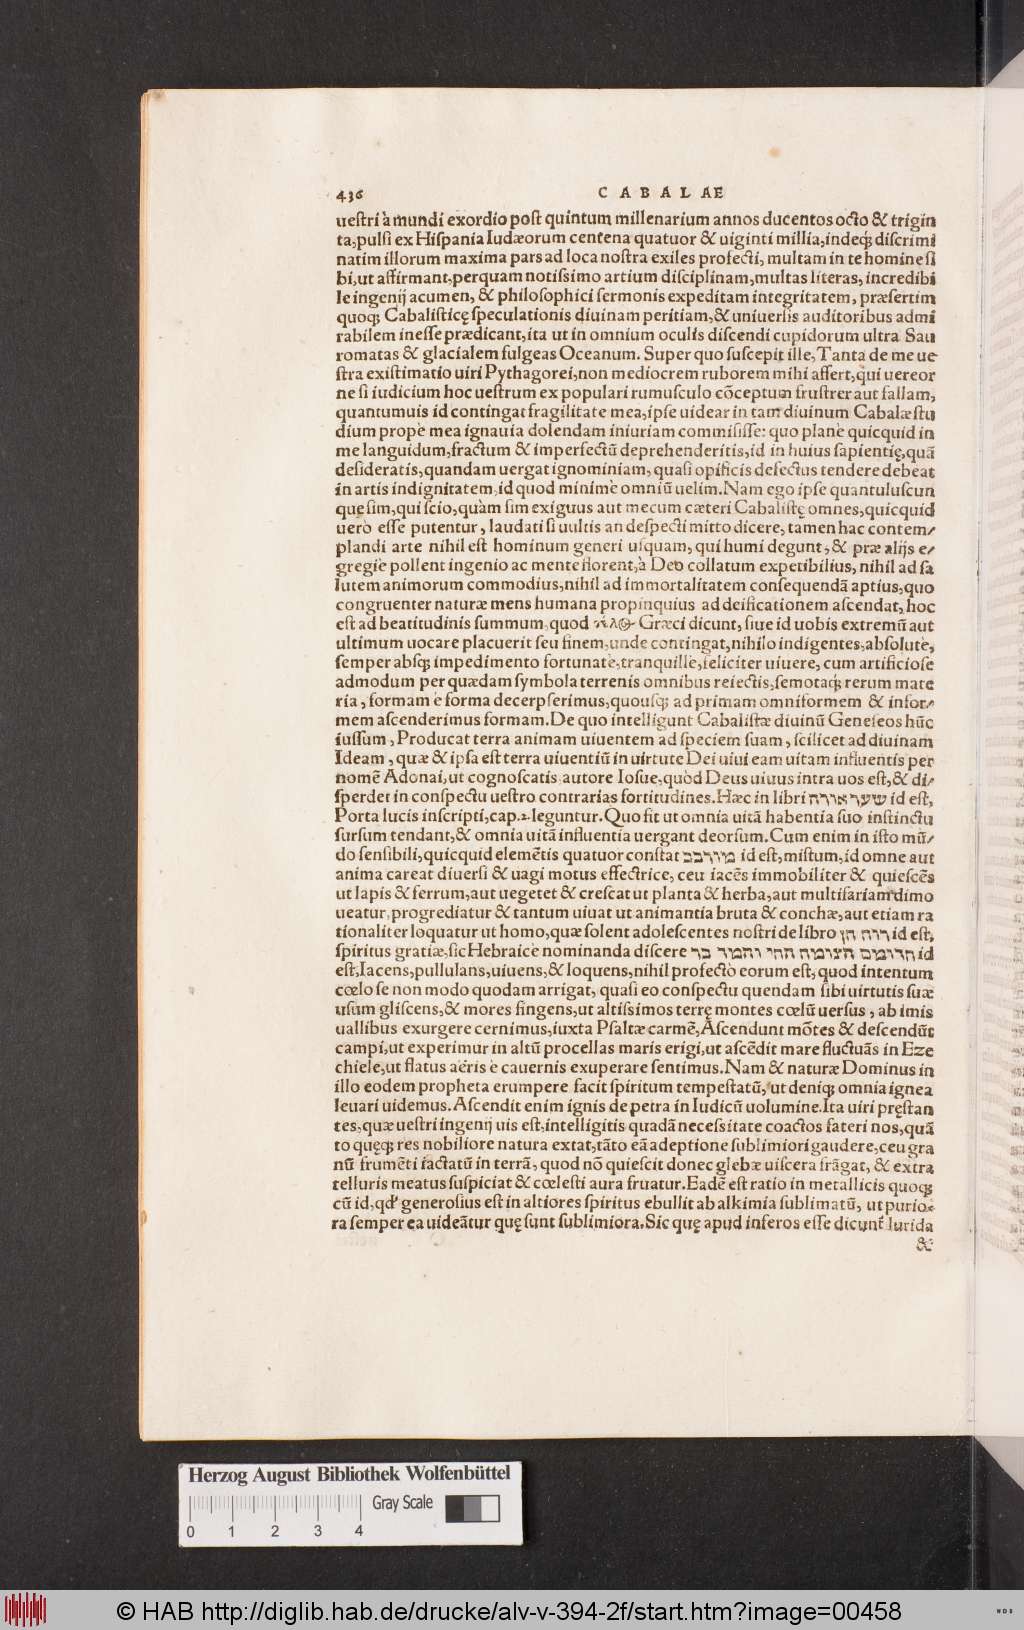 436 CABALAE
uestri à mundi exordio post quintum millenarium annos ducentos octo & trigin
ta, pulsi ex Hispania Iudæorum centena quatuor & uiginti millia, indeq; discrimi
natim illorum maxima pars ad loca nostra exiles profecti, multam in te homine si
bi, ut affirmant, perquam notissimo artium disciplinam, multas literas, incredibi
le ingenij acumen, & philosophici sermonis expeditam integritatem, præsertim
quoq; Cabalisticę speculationis diuinam peritiam, & uniuersis auditoribus admi
rabilem inesse prædicant, ita ut in omnium oculis discendi cupidorum ultra Sau
romatas & glacialem fulgeas Oceanum. Super quo suscepit ille, Tanta de me ue-
stra existimatio uiri Pythagorei, non mediocrem ruborem mihi affert, qui uereor
ne si iudicium hoc uestrum ex populari rumusculo cōceptum frustrer aut fallam,
quantumuis id contingat fragilitate mea, ipse uidear in tam diuinum Cabalæ stu
dium propè mea ignauia dolendam iniuriam commisisse: quo planè quicquid in
me languidum, fractum & imperfectū deprehenderitis, id in huius sapientię, quā
desideratis, quandam uergat ignominiam, quasi opificis defectus tendere debeat
in artis indignitatem, id quod minimè omniū uelim. Nam ego ipse quantuluscun
que sim, qui scio, quàm sim exiguus aut mecum cæteri Cabalistę omnes, quicquid
uerò esse putentur, laudati si uultis an despecti mitto dicere, tamen hac contem-
plandi arte nihil est hominum generi usquam, qui humi degunt, & præ alijs e-
gregiè pollent ingenio ac mente florent, à Deo collatum expetibilius, nihil ad sa
lutem animorum commodius, nihil ad immortalitatem consequendā aptius, quo
congruenter naturæ mens humana propinquius ad deificationem ascendat, hoc
est ad beatitudinis summum, quod τέλος Græci dicunt, siue id uobis extremū aut
ultimum uocare placuerit seu finem, unde contingat, nihilo indigentes, absolutè,
semper absq; impedimento fortunatè, tranquillè, feliciter uiuere, cum artificiose
admodum per quædam symbola terrenis omnibus reiectis, semotaq; rerum mate
ria, formam è forma decerpserimus, quousq; ad primam omniformem & infor-
mem ascenderimus formam. De quo intelligunt Cabalistæ diuinū Geneseos hūc
iussum, Producat terra animam uiuentem ad speciem suam, scilicet ad diuinam
Ideam, quæ & ipsa est terra uiuentiū in uirtute Dei uiui eam uitam influentis per
nomē Adonai, ut cognoscatis autore Iosue, quòd Deus uiuus intra uos est, & di-
sperdet in conspectu uestro contrarias fortitudines. Hæc in libri שער אורה id est,
Porta lucis inscripti, cap. 2. leguntur. Quo fit ut omnia uitā habentia suo instinctu
sursum tendant, & omnia uitā influentia uergant deorsum. Cum enim in isto mū-
do sensibili, quicquid elemētis quatuor constat מורכב id est, mistum, id omne aut
anima careat diuersi & uagi motus effectrice, ceu iacēs immobiliter & quiescēs
ut lapis & ferrum, aut uegetet & crescat ut planta & herba, aut multifariam dimo
ueatur, progrediatur & tantum uiuat ut animantia bruta & conchæ, aut etiam ra
tionaliter loquatur ut homo, quæ solent adolescentes nostri de libro רוח חן id est,
spiritus gratiæ, sic Hebraicè nominanda discere הדומם הצומח החי והמדבר id
est, Iacens, pullulans, uiuens, & loquens, nihil profectò eorum est, quod intentum
cœlo se non modo quodam arrigat, quasi eo conspectu quendam sibi uirtutis suæ
usum gliscens, & mores fingens, ut altissimos terrę montes cœlū uersus, ab imis
uallibus exurgere cernimus, iuxta Psaltæ carmē, Ascendunt mōtes & descendūt
campi, ut experimur in altū procellas maris erigi, ut ascēdit mare fluctuās in Eze
chiele, ut flatus aëris è cauernis exuperare sentimus. Nam & naturæ Dominus in
illo eodem propheta erumpere facit spiritum tempestatū, ut deniq; omnia ignea
leuari uidemus. Ascendit enim ignis de petra in Iudicū uolumine. Ita uiri pręstan
tes, quæ uestri ingenij uis est, intelligitis quadā necessitate coactos fateri nos, quā
to quęq; res nobiliore natura extat, tāto eā adeptione sublimiori gaudere, ceu gra
nū frumēti iactatū in terrā, quod nō quiescit donec glebæ uiscera frāgat, & extra
telluris meatus suspiciat & cœlesti aura fruatur. Eadē est ratio in metallicis quoq;
cū id, qd' generosius est in altiores spiritus ebullit ab alkimia sublimatū, ut purio-
ra semper ea uideātur quę sunt sublimiora. Sic quę apud inferos esse dicunt lurida
&
Herzog August Bibliothek Wolfenbüttel
Gray Scale
0 1 2 3 4
© HAB http://diglib.hab.de/drucke/alv-v-394-2f/start.htm?image=00458